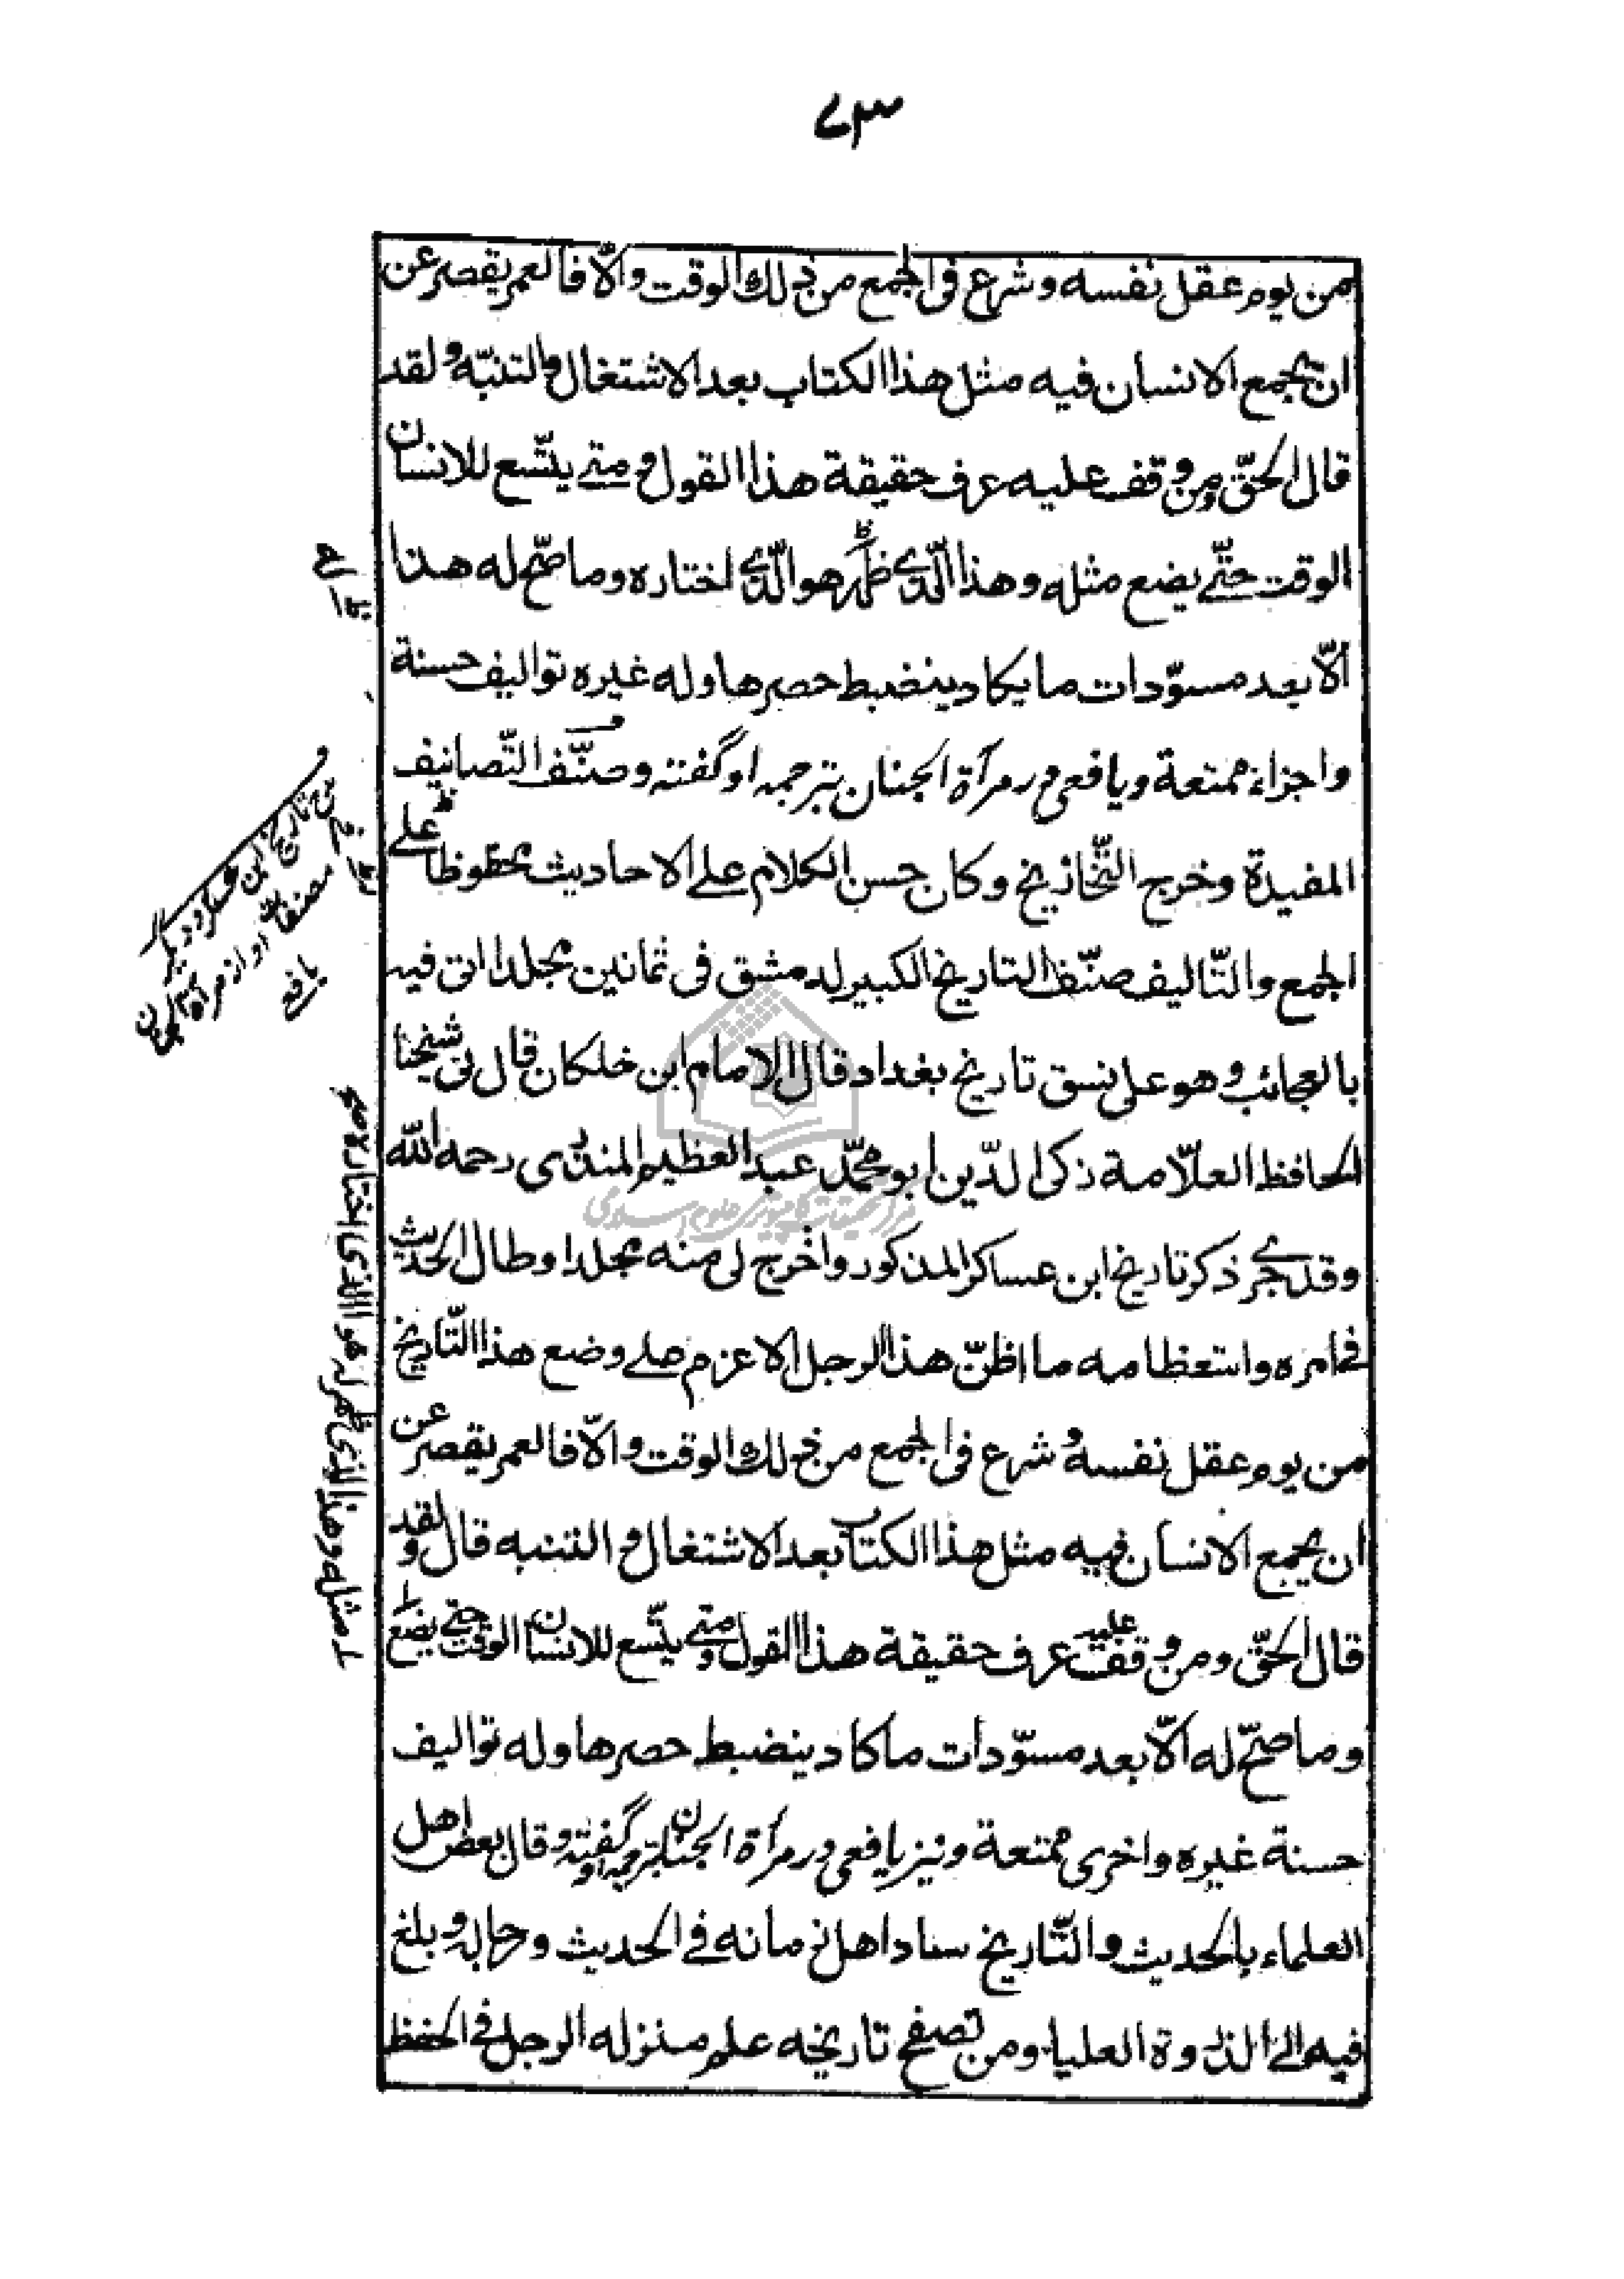 ۷۳
من يوم عقل نفسه و شرع فى الجمع من ذلك الوقت والّا فالعمر يقصر عن
ان يجمع الانسان فيه مثل هذا الكتاب بعد الاشتغال والتنبّه ولقد
قال الحقّ ومن وقف عليه عرف حقيقة هذا القول و متى يتّسع للانسان
الوقت حتّى يضع مثله و هذا الّذى ظهر هو الّذى اختاره وما صحّ له هذا
الّا بعد مسوّدات ما يكاد ينضبط حصرها وله غيره تواليف حسنة
واجزاء ممتعة و يافعى در مرآة الجنان بترجمه او گفته و صنّف التّصانيف
المفيدة و خرج التّخاريج و كان حسن الكلام على الاحاديث محظوظا على
الجمع والتّاليف صنّف التاريخ الكبير لدمشق فى ثمانين مجلدا اتى فيه
بالعجائب و هو على نسق تاريخ بغداد قال الامام ابن خلكان قال لى شيخنا
الحافظ العلّامة زكى الدّين ابو محمّد عبد العظيم المنذرى رحمه الله
وقد جرى ذكر تاريخ ابن عساكر المذكور و اخرج لى منه مجلدا و طال الحديث
فى امره واستعظامه ما اظنّ هذا الرجل الا عزم على وضع هذا التّاريخ
من يوم عقل نفسه و شرع فى الجمع من ذلك الوقت والّا فالعمر يقصر عن
ان يجمع الانسان فيه مثل هذا الكتاب بعد الاشتغال و التنبه قال ولقد
قال الحقّ و من وقف عليه عرف حقيقة هذا القول و متى يتّسع للانسان الوقت حتى يضع
وما صحّ له الّا بعد مسوّدات ما كاد ينضبط حصرها وله تواليف
حسنة غيره واخرى ممتعة و نيز يافعى در مرآة الجنان بترجمه او گفته و قال بعض اهل
العلماء بالحديث و التّاريخ ساد اهل زمانه فى الحديث و رجاله و بلغ
فيه الى الذروة العليا و من تصفح تاريخه علم منزله الرجل فى الحفظ
مدح تاريخ ابن عساكر و ديگر
مصنفات او از مرآة الجنان
يافعى
مثله و هذا الذى ظهر له هو الذى اختاره و صح